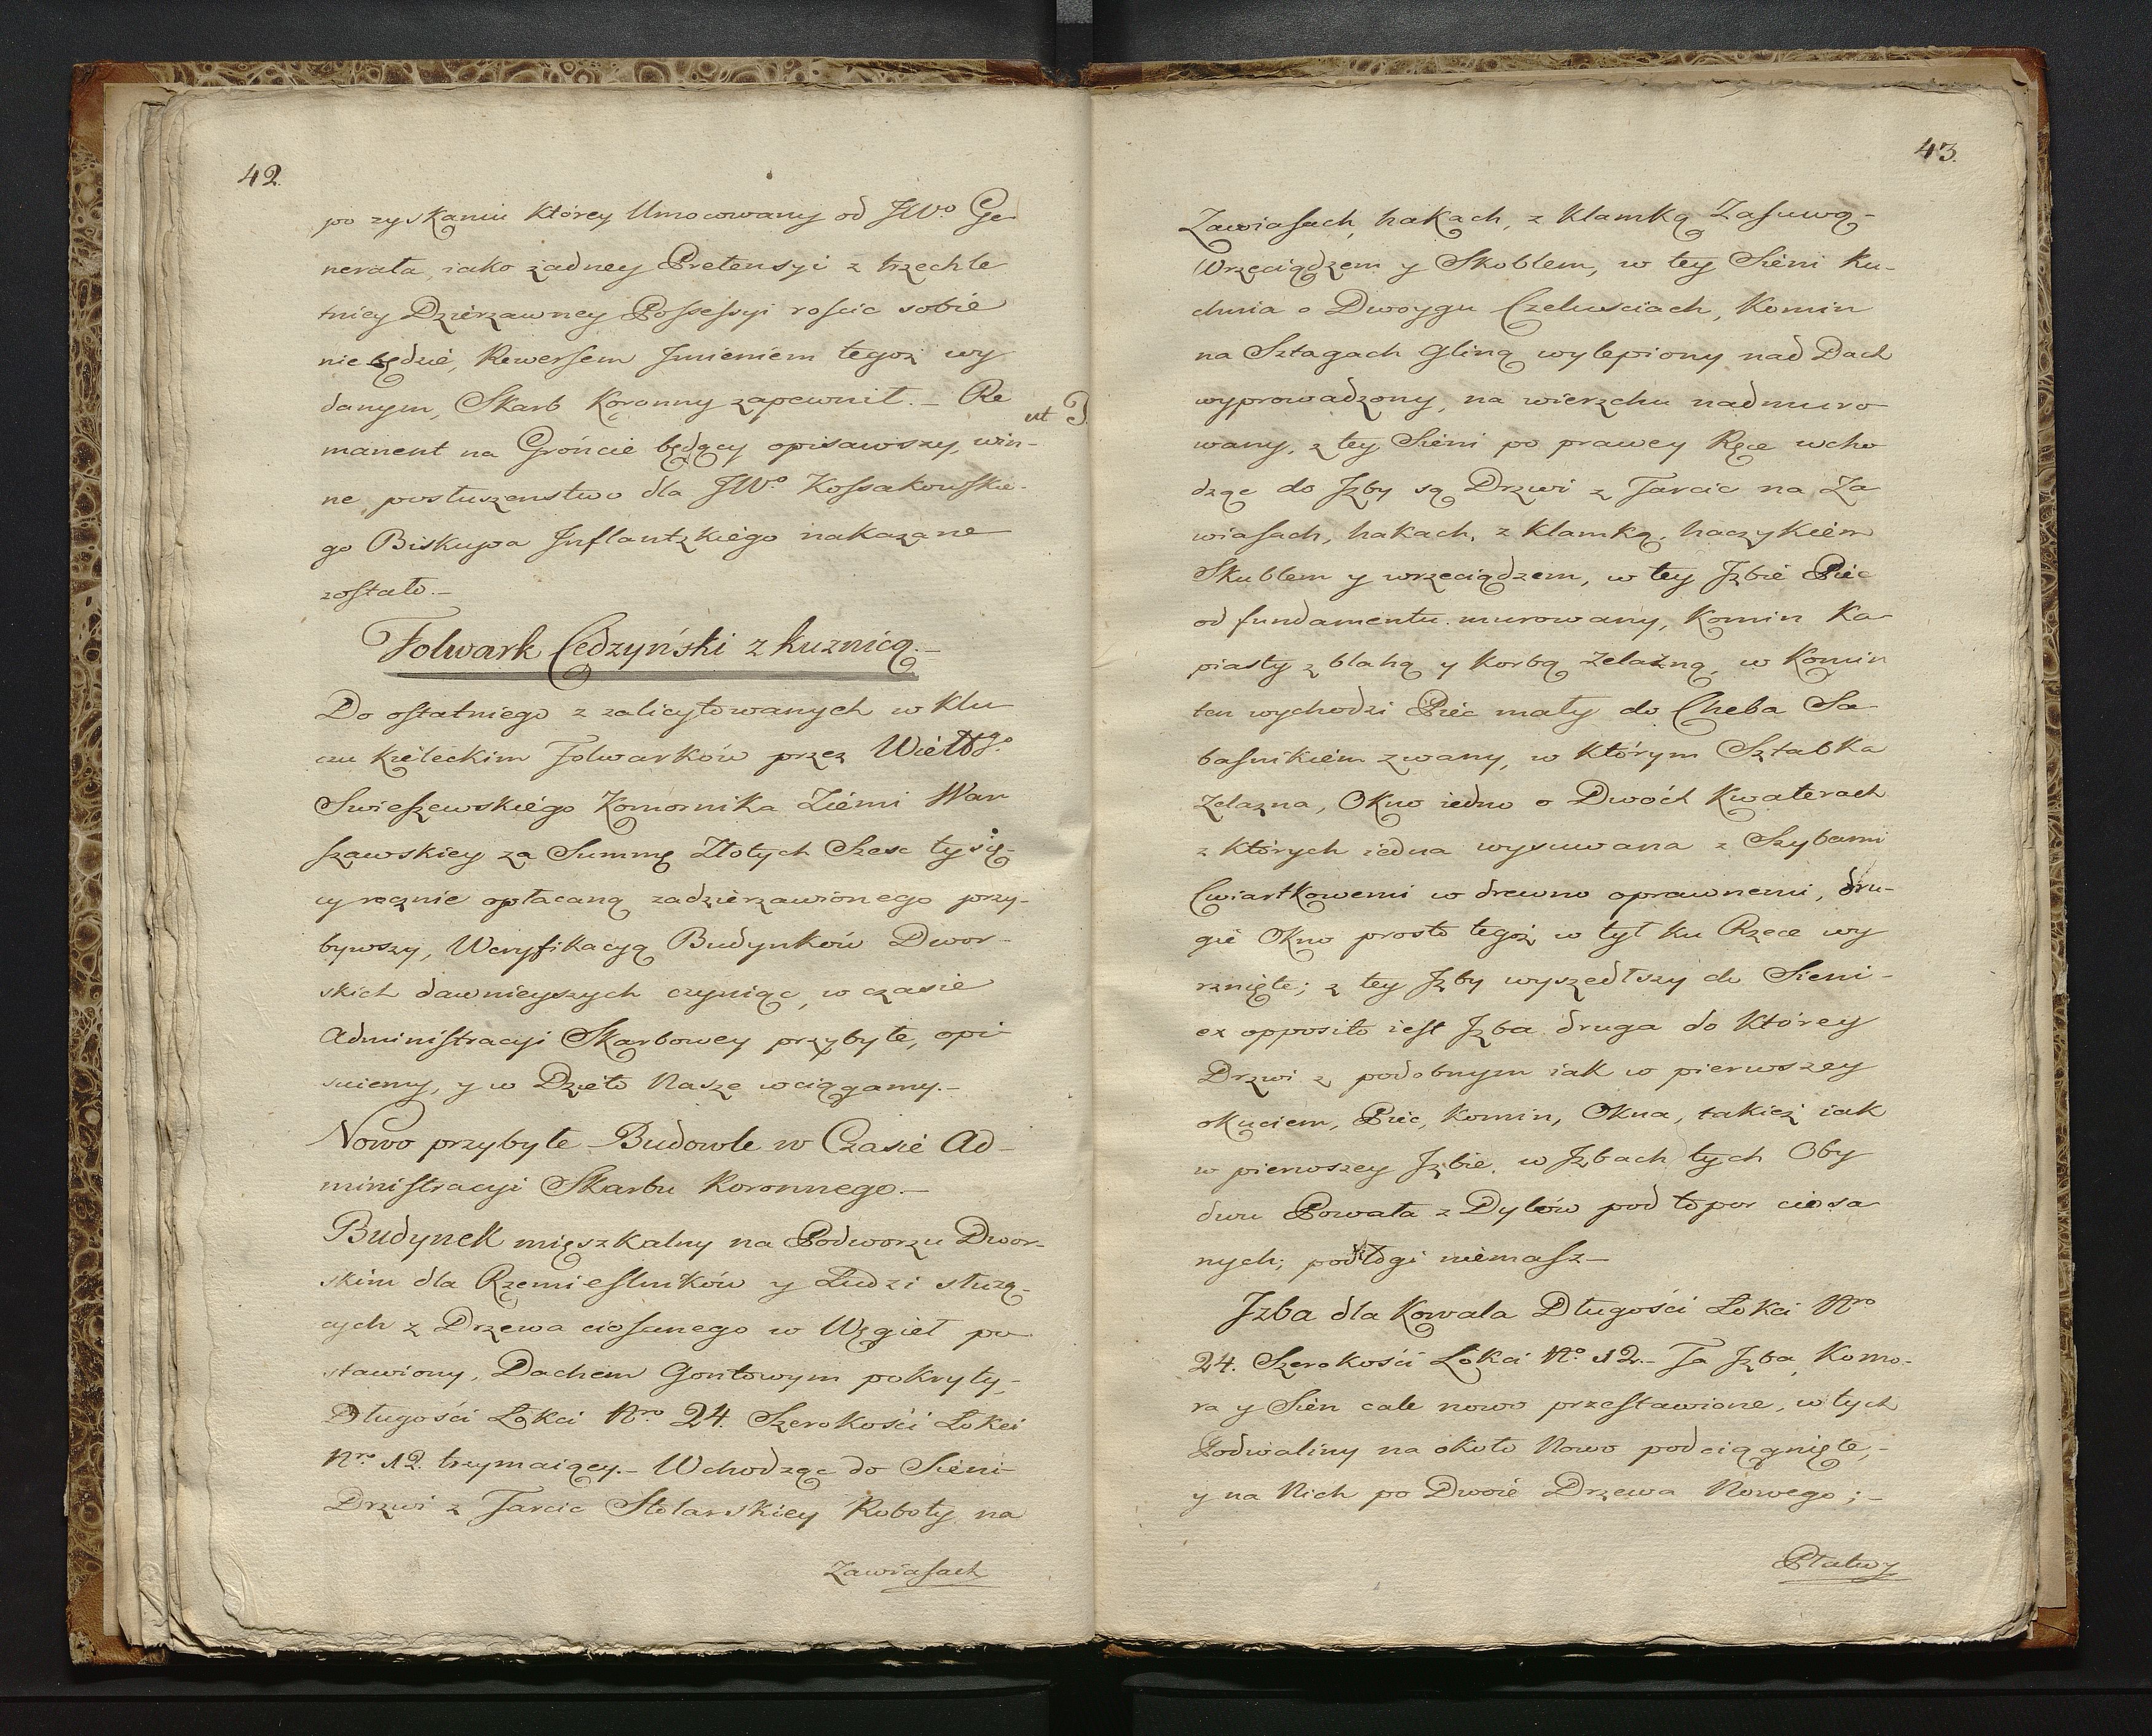 42.
po zyskaniu którey Umocowany od JW.o Ge
nerała, iako żadney Pretensyi z trzechle
tniey Dzierzawney Possessyi roście sobie
nie będzie, Rewersem Jmieniem tegoż wy
danym, Skarb Koronny zapewnił. – Re
ut J.
manent na Gróncie będący opisawszy, win-
ne posłuszenstwo dla JW.o Kossakowskie-
go Biskupa Jnflantzkiego nakazane
zostało. –
Folwark Cedzyński z kuznicą. –
Do ostatniego z zalicytowanych w Klu
czu Kieleckim Folwarków przez Wiel.go
Swieszewskiego Komornika Ziémi War
szawskiey za Summę Złotych Szesc tysię-
cy rocznie opłacaną zadzierzawionego przy-
bywszy, Weryfikacyą Budynków Dwor-
skich dawnieyszych czyniąc, w czasie
Administracyi Skarbowey przybyłe, opi
suiemy, y w Dzieło Nasze wciągamy. –
Nowo przybyłe Budowle w Czasie Ad-
ministracyi Skarbu Koronnego. –
Budynek mięszkalny na Podworzu Dwor-
skim dla Rzemieslników y Ludzi służą-
cych z Drzewa ciosanego w Węgieł po
stawiony, Dachem Gontowym pokryty,
Długości Łokci Nro 24. Szerokości Łokci
Nro 12. trzymaiący. – Wchodząc do Sieni
Drzwi z Tarcic Stolarskiey Roboty na
Zawiasach
43.
Zawiasach, hakach, z Klamką Zasuwą –
Wrzeciądzem y Skoblem, w tey Sieni Ku-
chnia o Dwoygu Czelusciach, Komin
na Sztagach gliną wylepiony nad Dach
wyprowadzony, na wierzchu nadmuro
wany, z tey Sieni po prawey Ręce wcho
dząc do Jzby są Drzwi z Tarcic na Za
wiasach, hakach, z klamką, haczykiem
Skublem y wrzeciądzem, w tey Jzbie Piec
od fundamentu murowany, Komin Ka
piasty z blahą y korbą żelazną, w Komin
ten wychodzi Piec mały do Chleba Sa
basnikiem zwany, w którym Sztabka
żelazna, Okno iedno o Dwóch Kwaterach
z których iedna wysuwana z Szybami
Cwiartkowemi w drewno oprawnemi, dru-
gie Okno prosto tegoż w tył ku Rzece wy
rznięte; z tey Jzby wyszedłszy do Sieni –
ex opposito iest Jzba druga do którey
Drzwi z podobnym iak w pierwszey
okuciem, Piec, Komin, Okna, takież iak
w pierwszey Jzbie, w Jzbach tych Oby
dwu Powała z Dylów pod topor ciosa
nych; podłogi niemasz –
Jzba dla Kowala Długości Łokci Nro
24. Szerokości Łokci No 12. – Ta Jzba, Komo-
ra y Sien cale nowo przestawione, w tych
Podwaliny na około Nowo podciągnięte, –
y na Nich po Dwoie Drzewa Nowego; –
Płatwy